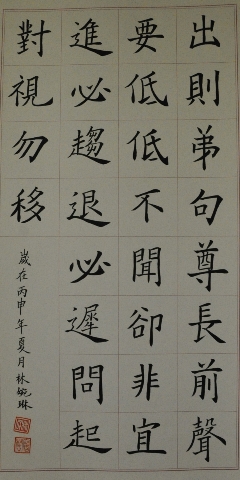 出則弟句尊長前聲
要低低不聞卻非宜
進必趨退必遲問起
對視勿移
歲在丙申年夏月林婉琳